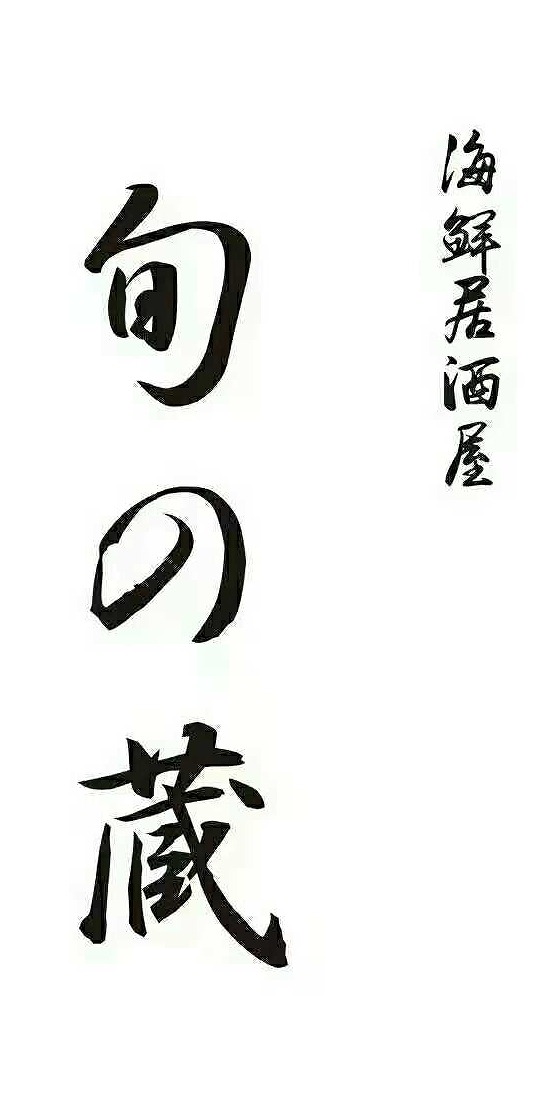 海鮮居酒屋
旬の蔵